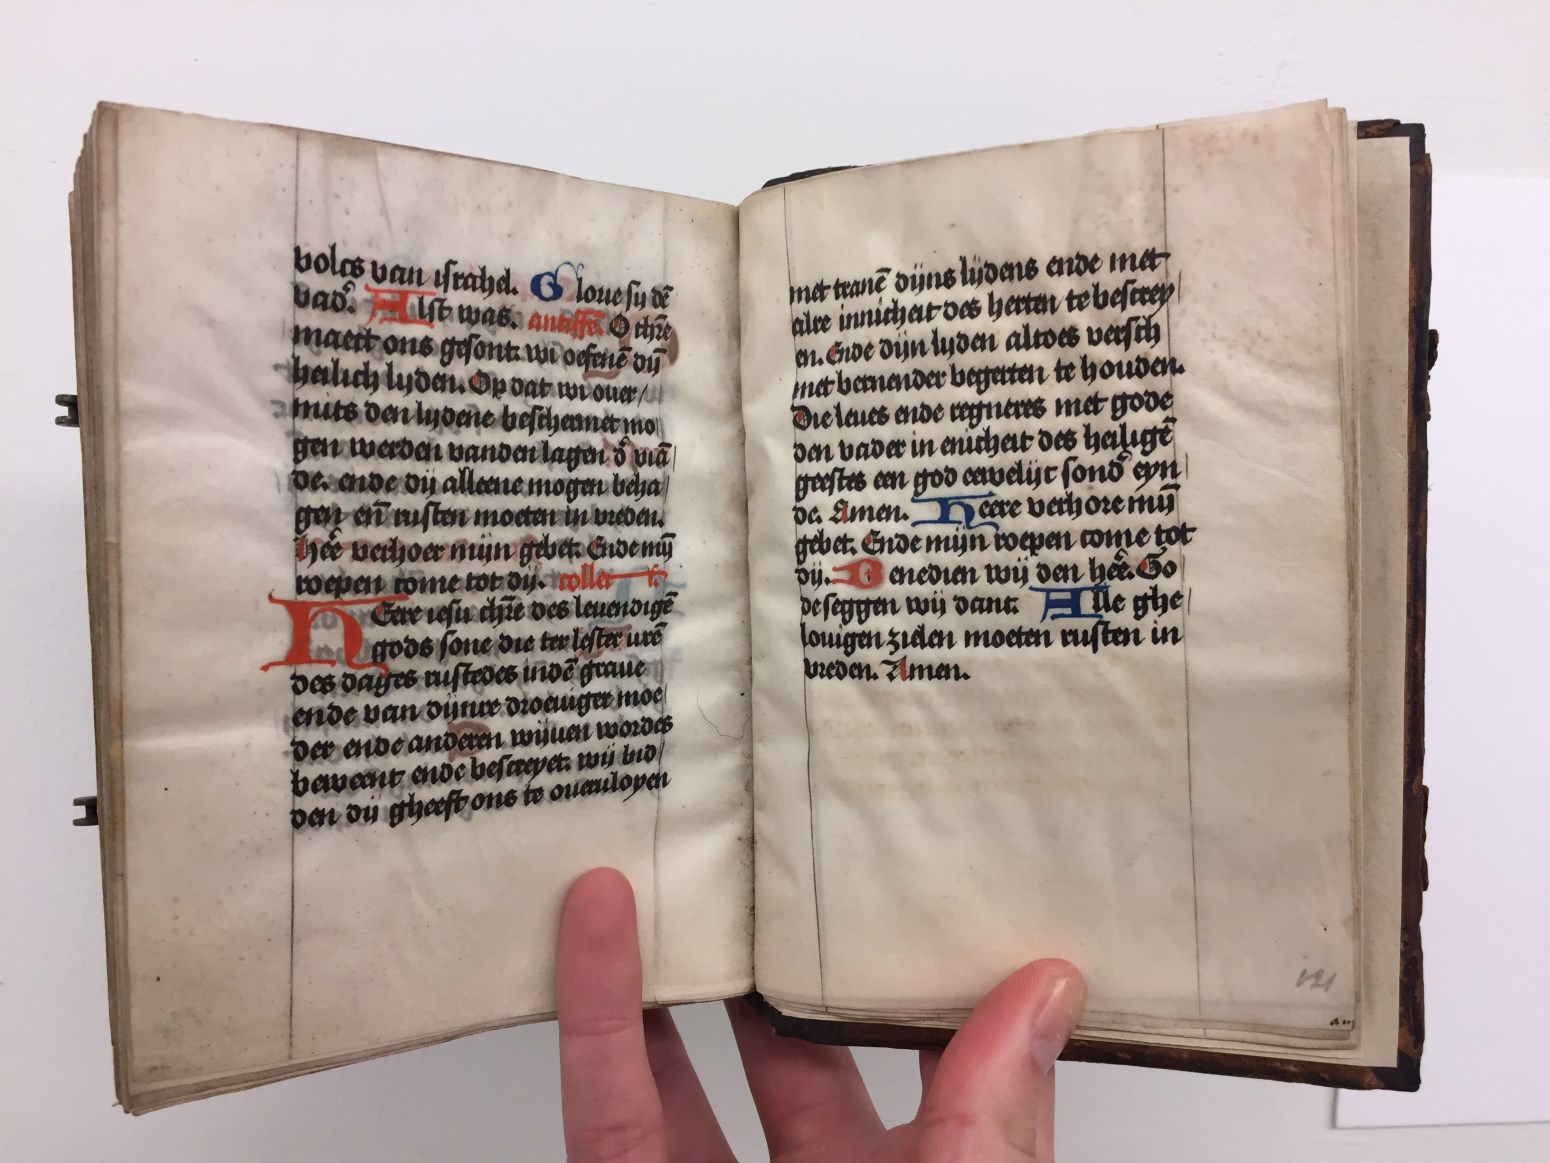 volcs van israhel. Glorie sy dē
vad᷒. Alst was. antiffē. O cħre
maect ons gesont. wi oefenē dȳ
heilich lijden. Op dat wi ouer/
mits den lijdene beschermet mo
gen werden vanden lagen d᷒ viā
de. ende dij alleene mogen beha
gen eñ rusten moeten in vreden.
heē verhoer mijn gebet. Ende mȳ
roepen come tot dij. collect.
HEere iesu cħre des leuendigē
gods sone die ter lester urē
des dages rustedes indē graue
ende van dijnre droeuiger moe
der ende anderen wijuen wordes
beweent ende bescreyet. wij bid/
den dij gheeft ons te oueruloyen
met tranē dijns lijdens ende met
alre innicheit des herten te bescrey
en. Ende dijn lyden altoes versch
met bernender begerten te houden.
Die leues ende regneres met gode
den vader in enicheit des heiligē
geestes een god eewelijc sond᷒ eyn
de. Amen. Heere verhore mȳ
gebet. Ende mijn roepen come tot
dij. Benedien wij den heē. Go
de seggen wij danc. Alle ghe/
louigen zielen moeten rusten in
vreden. Amen.
121